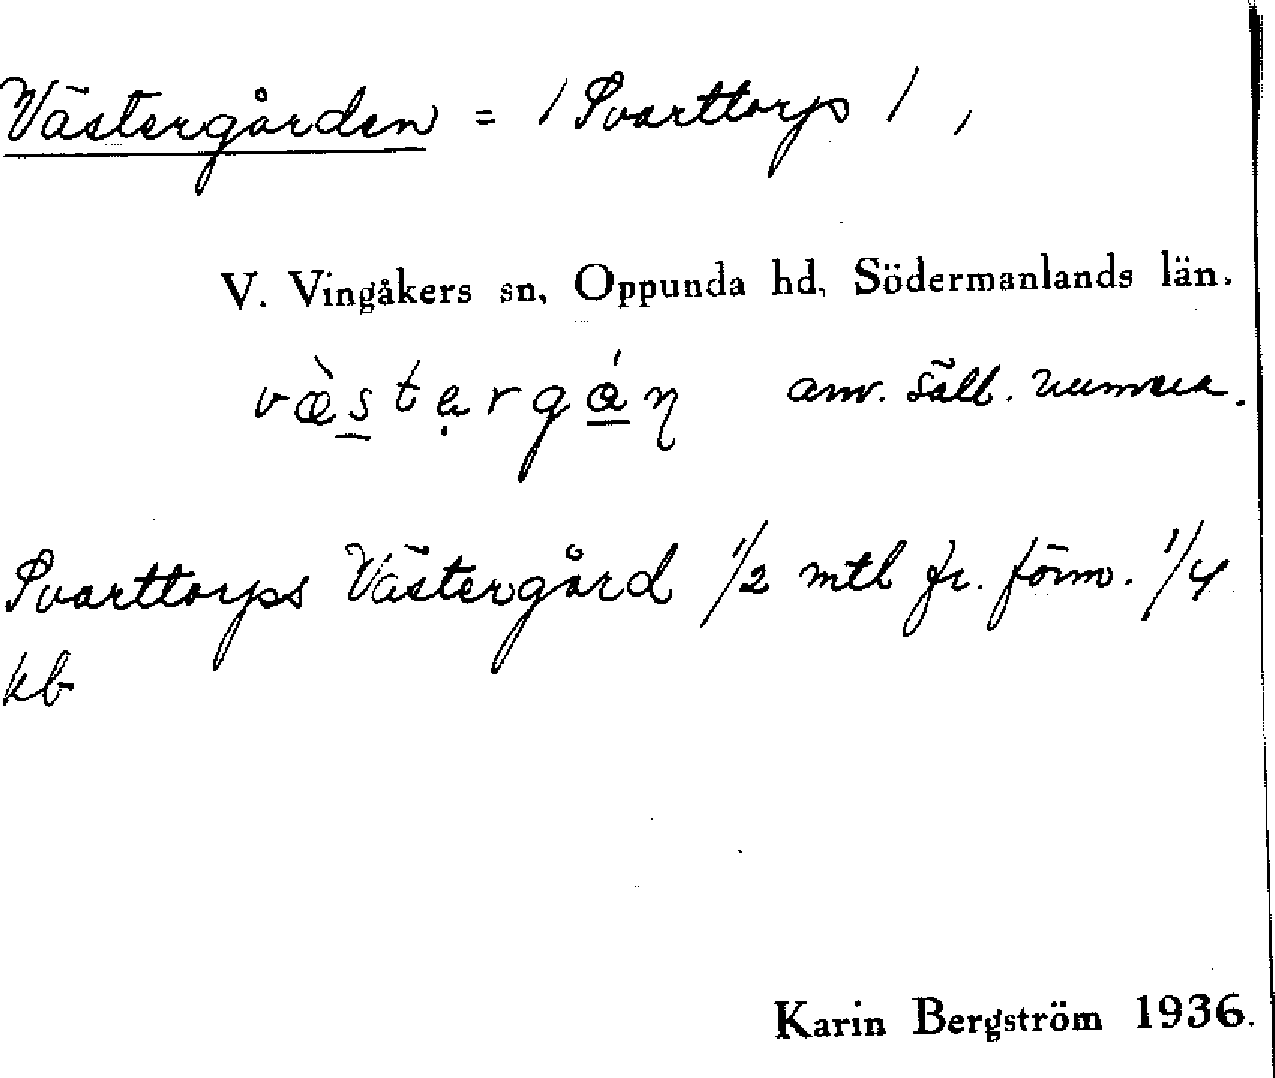 Västergården = / Svarttorp / ,
V. Vingåkers sn, Oppunda hd, Södermanlands län.
væ̀stẹrgǽn anv. säll. numera.
Svarttorps Västergård 1/2 mtl fr. förm. 1/4
kb
Karin Bergström 1936.